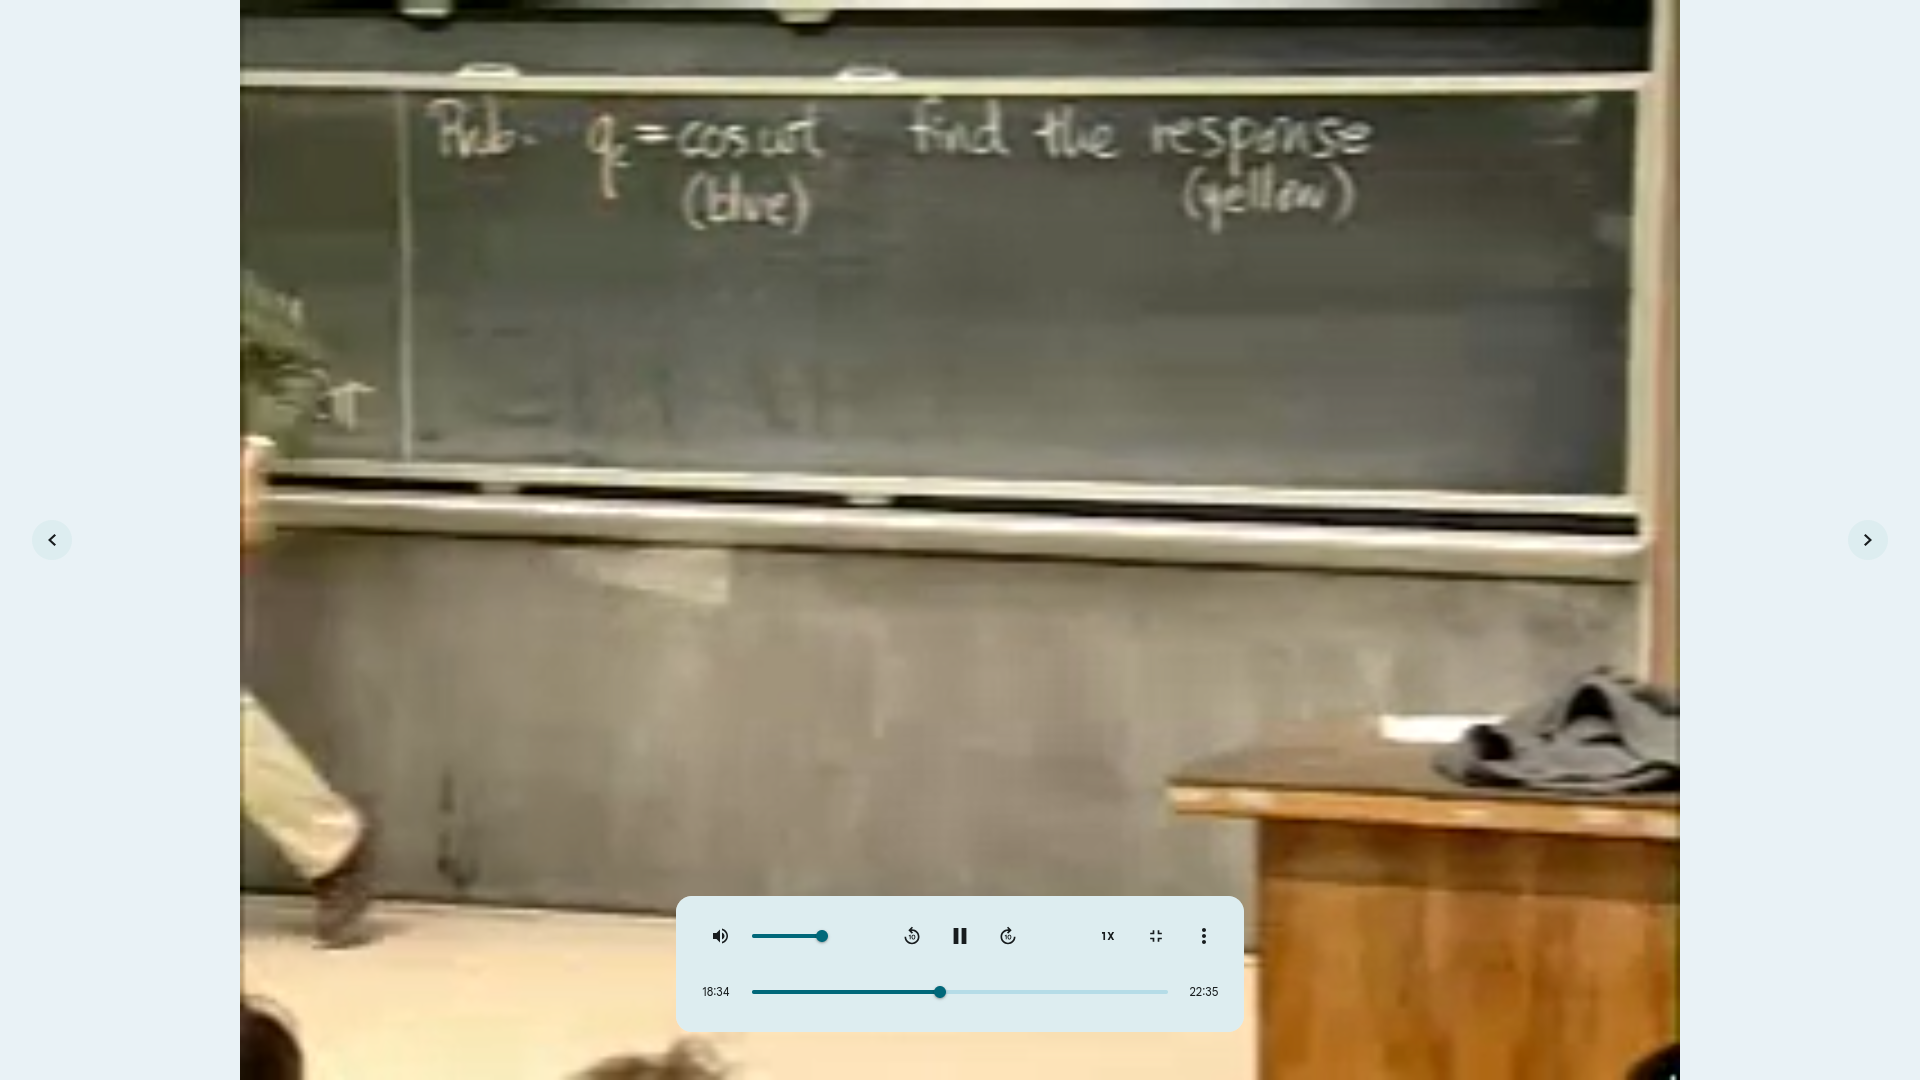 Prob. qe = cos ωt find the response
(blue) (yellow)
1X
18:34 22:35